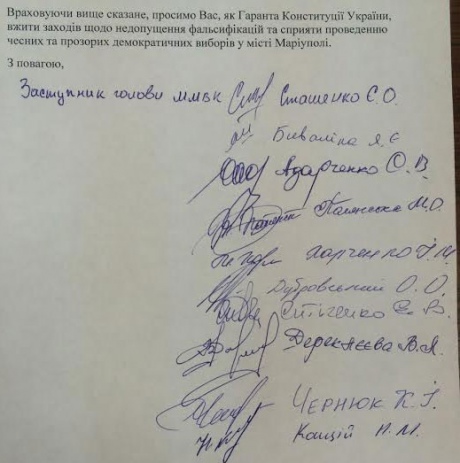 Враховуючи вище сказане, просимо Вас, як Гаранта Конституції України,
вжити заходів щодо недопущення фальсифікацій та сприяти проведенню
чесних та прозорих демократичних виборів у місті Маріуполі.
З повагою,
Заступник голови ММВК Сташенко С.О.
Биваліна Я.Є
Адарченко О.В.
М.О.
Харченко І.М
Дубровський О.О.
Сітіченко Є.В.
В.Я.
ЧЕРНЮК К.І.
Кощій Н.М.